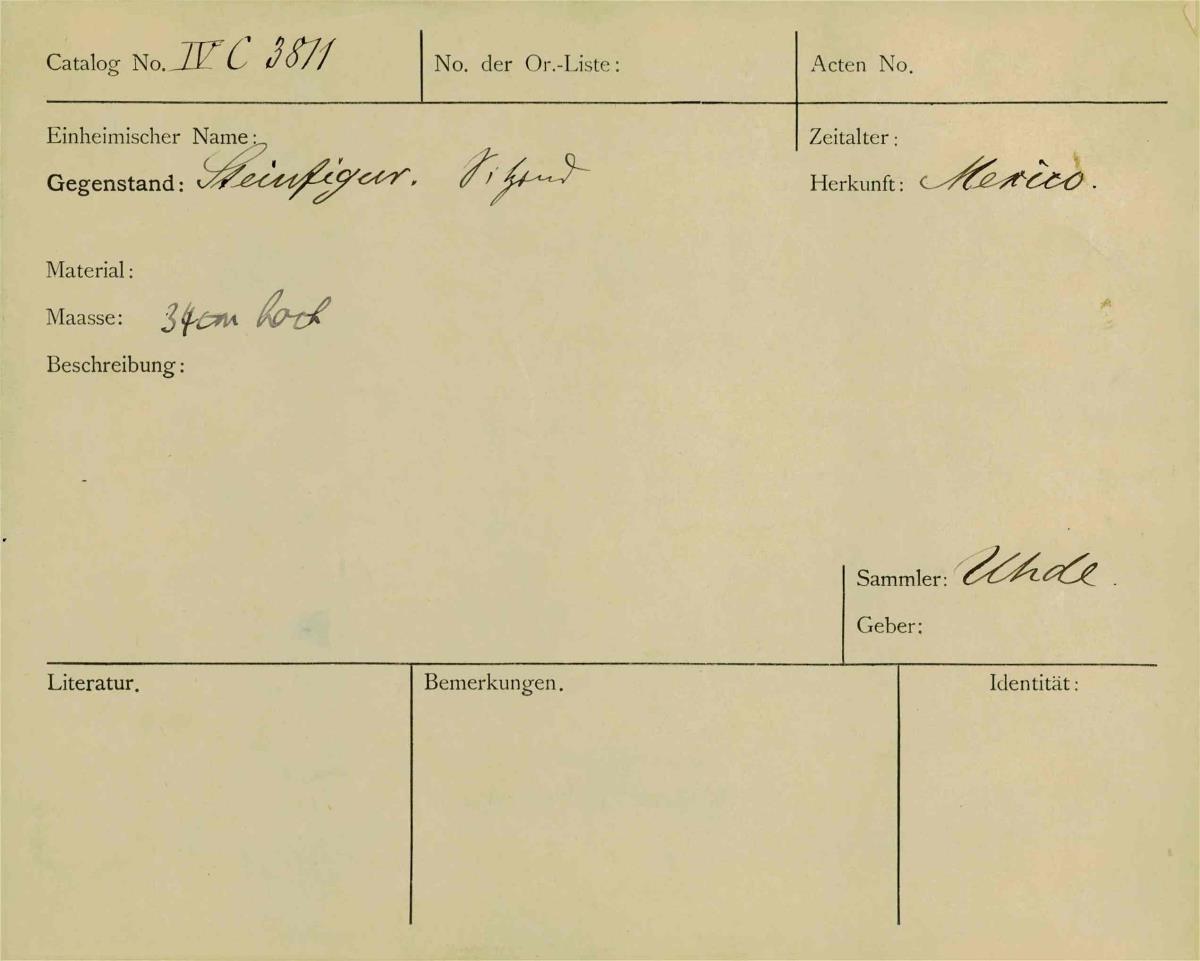 Catalog No. IV C 3811 No. der Or.-Liste: Acten No.
Einheimischer Name: Zeitalter:
Gegenstand: Steinfigur. Sitzend Herkunft: Mexico.
Material:
Maasse: 34cm hoch
Beschreibung:
Sammler: Uhde.
Geber:
Literatur. Bemerkungen. Identität: